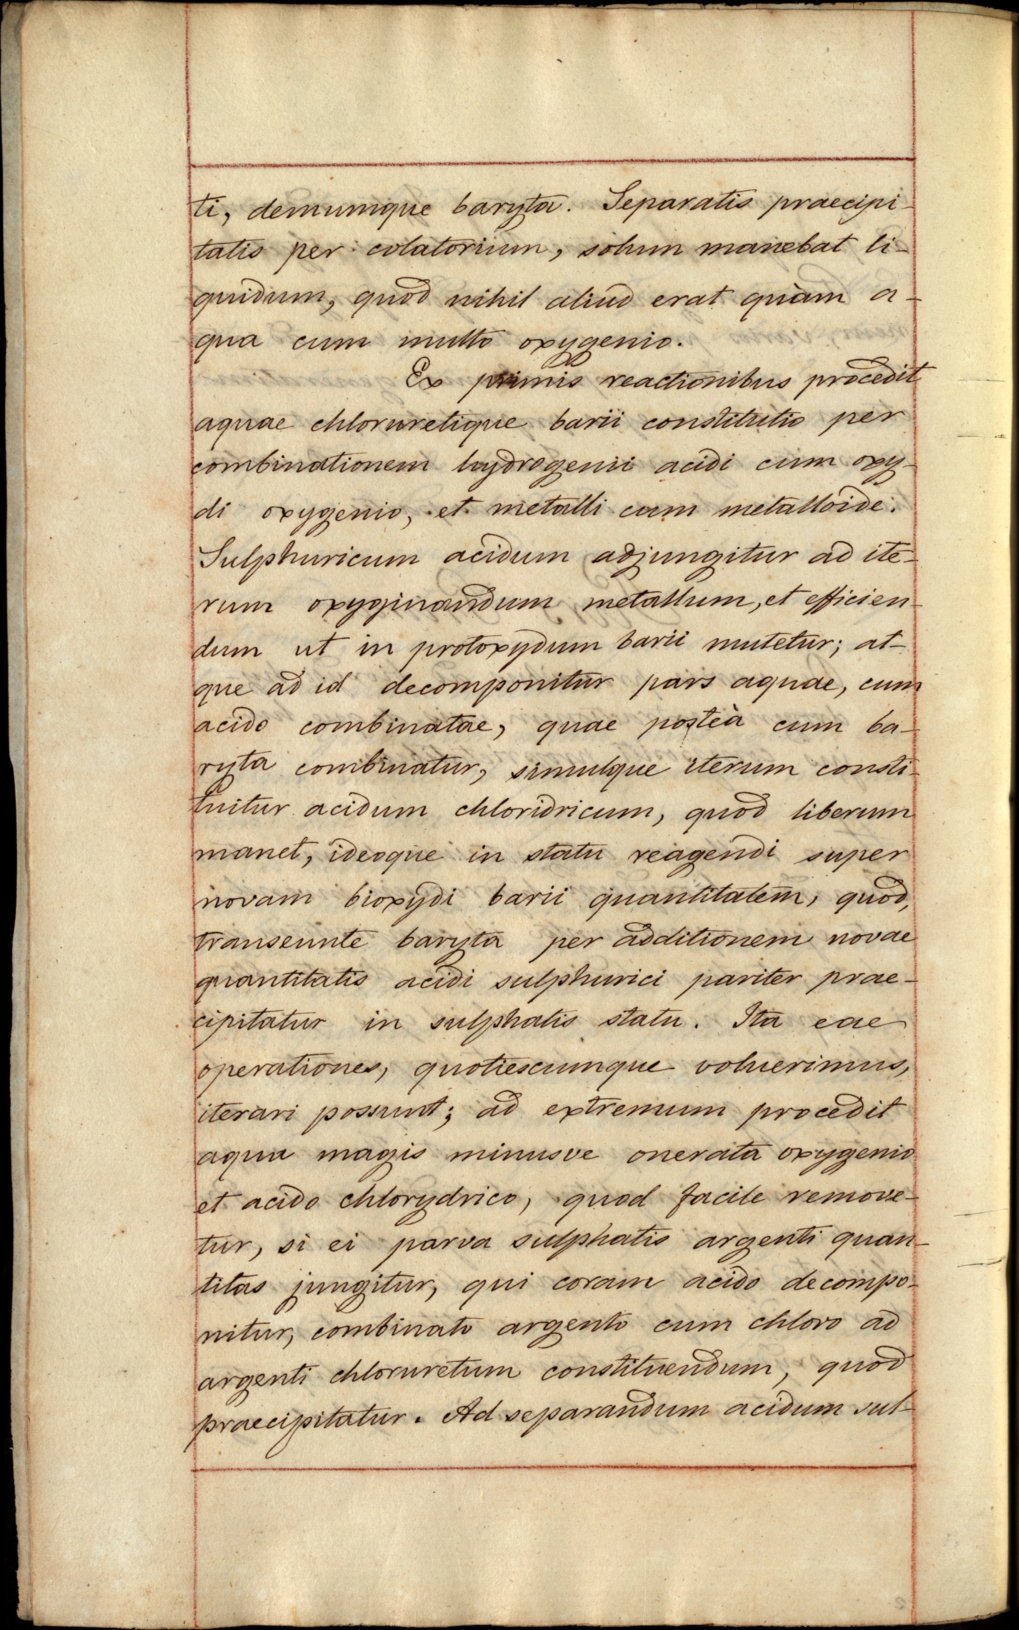 ti, demumque baryta. Separatis praecipi-
tatis per colatorium, solum manebat li-
quidum, quod nihil aliud erat quàm a-
qua cum multo oxygenio.
Ex primis reactionibus procedit
aquae chloruretique barii constitutio per
combinationem hydrogenii acidi cum oxy-
di oxygenio, et metalli cum metalloide.
Sulphuricum acidum adjungitur ad ite-
rum oxyginandum metallum, et efficien-
dum ut in protoxydum barii mutetur; at-
que ad id decomponitur pars aquae, cum
acido combinatae, quae posteà cum ba-
ryta combinatur, simulque iterum consti-
tuitur acidum chloridricum, quod liberum
manet, ideoque in statu reagendi super
novam bioxydi barii quantitatem, quod,
transeunte baryta per additionem novae
quantitatis acidi sulphurici pariter prae-
cipitatur in sulphatis statu. Ita eae
operationes, quotiescumque voluerimus,
iterari possunt; ad extremum procedit
aqua magis minusve onerata oxygenio
et acido chlorydrico, quod facile remove-
tur, si ei parva sulphatis argenti quan-
titas jungitur, qui coram acido decompo-
nitur, combinato argento cum chloro ad
argenti chloruretum constituendum, quod
praecipitatur. Ad separandum acidum sul-